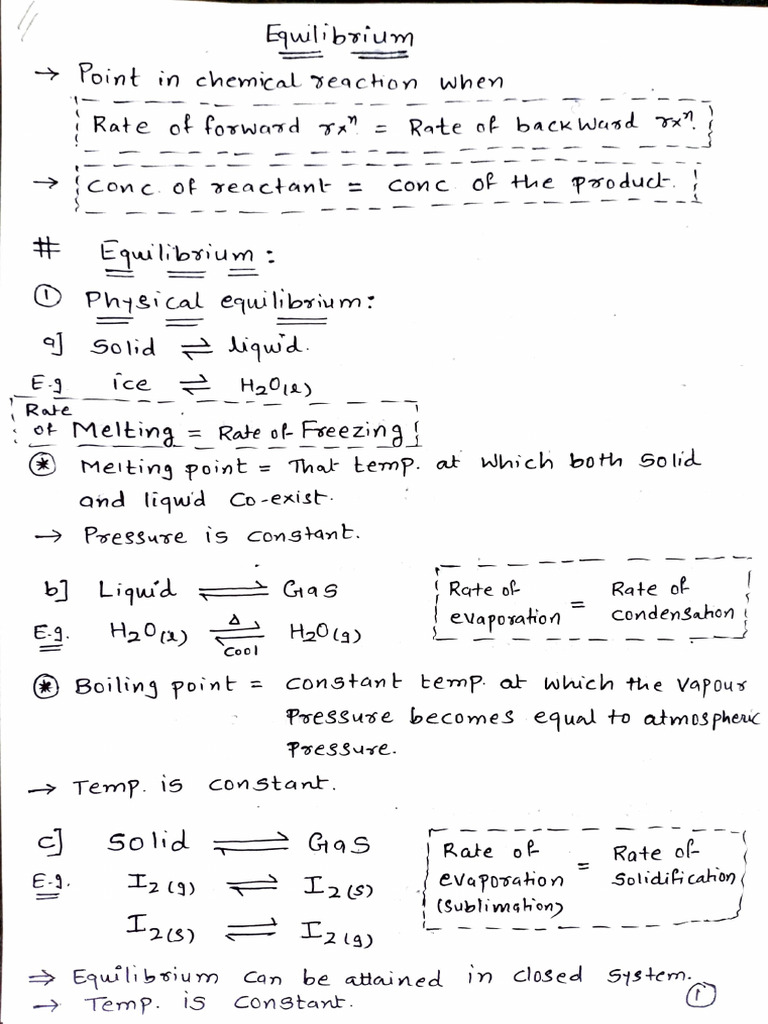 Equilibrium
→ Point in chemical reaction when
Rate of forward rxⁿ = Rate of backward rxⁿ.
→ Conc. of reactant = conc. of the product.
# Equilibrium:
① Physical equilibrium:
a] Solid ⇌ liquid.
E.g ice ⇌ H2O(l)
Rate
of Melting = Rate of Freezing
⊛ Melting point = That temp. at which both solid
and liquid Co-exist.
→ Pressure is constant.
b] Liquid ⇌ Gas
E.g. H2O(l) ⇌ H2O(g)
Δ
cool
Rate of evaporation = Rate of condensation
⊛ Boiling point = constant temp. at which the vapour
pressure becomes equal to atmospheric
pressure.
→ Temp. is constant.
c] Solid ⇌ Gas
E.g. I2(g) ⇌ I2(s)
I2(s) ⇌ I2(g)
Rate of evaporation (sublimation) = Rate of solidification
⇒ Equilibrium can be attained in closed system.
→ Temp. is constant.
①